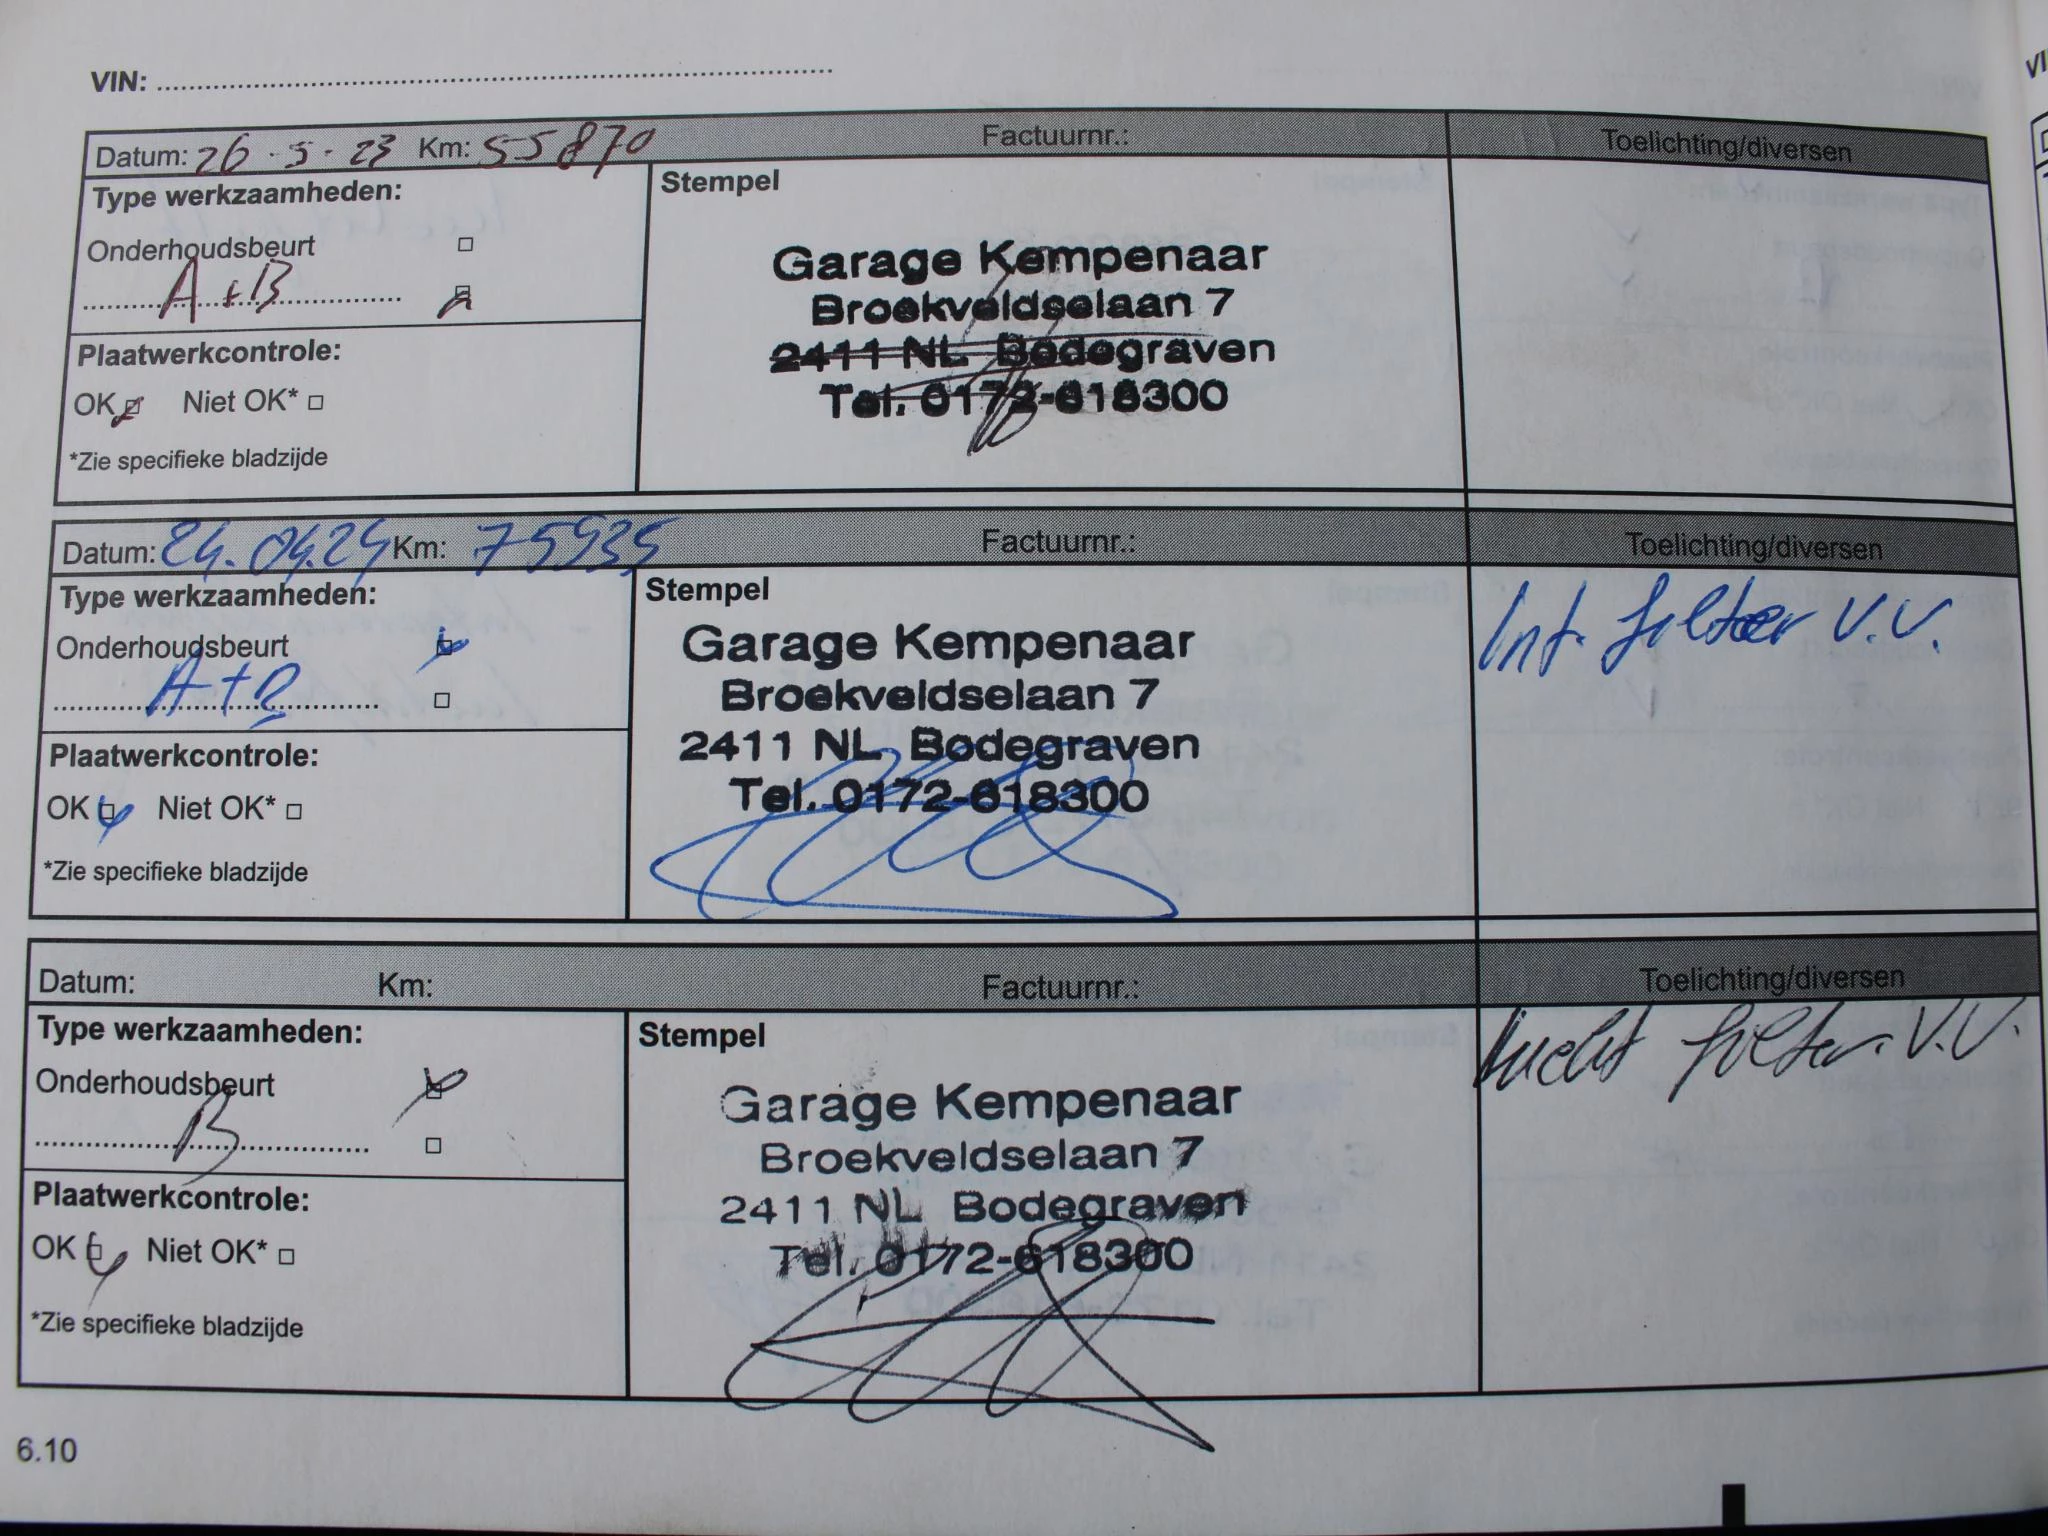 VIN:
Datum: 26-5-23 Km: 55870 Factuurnr.: Toelichting/diversen
Type werkzaamheden:
Stempel
Onderhoudsbeurt
A+B
Garage Kempenaar
Broekveldselaan 7
2411 NL Bodegraven
Tel. 0172-618300
Plaatwerkcontrole:
OK Niet OK*
*Zie specifieke bladzijde
Datum: 24.04.24 Km: 75935 Factuurnr.: Toelichting/diversen
Type werkzaamheden:
Stempel
Int. filter V.V.
Onderhoudsbeurt
A+B
Garage Kempenaar
Broekveldselaan 7
2411 NL Bodegraven
Tel. 0172-618300
Plaatwerkcontrole:
OK Niet OK*
*Zie specifieke bladzijde
Datum: Km: Factuurnr.: Toelichting/diversen
Type werkzaamheden:
Stempel
lucht filter V.V.
Onderhoudsbeurt
B
Garage Kempenaar
Broekveldselaan 7
2411 NL Bodegraven
Tel. 0172-618300
Plaatwerkcontrole:
OK Niet OK*
*Zie specifieke bladzijde
6.10